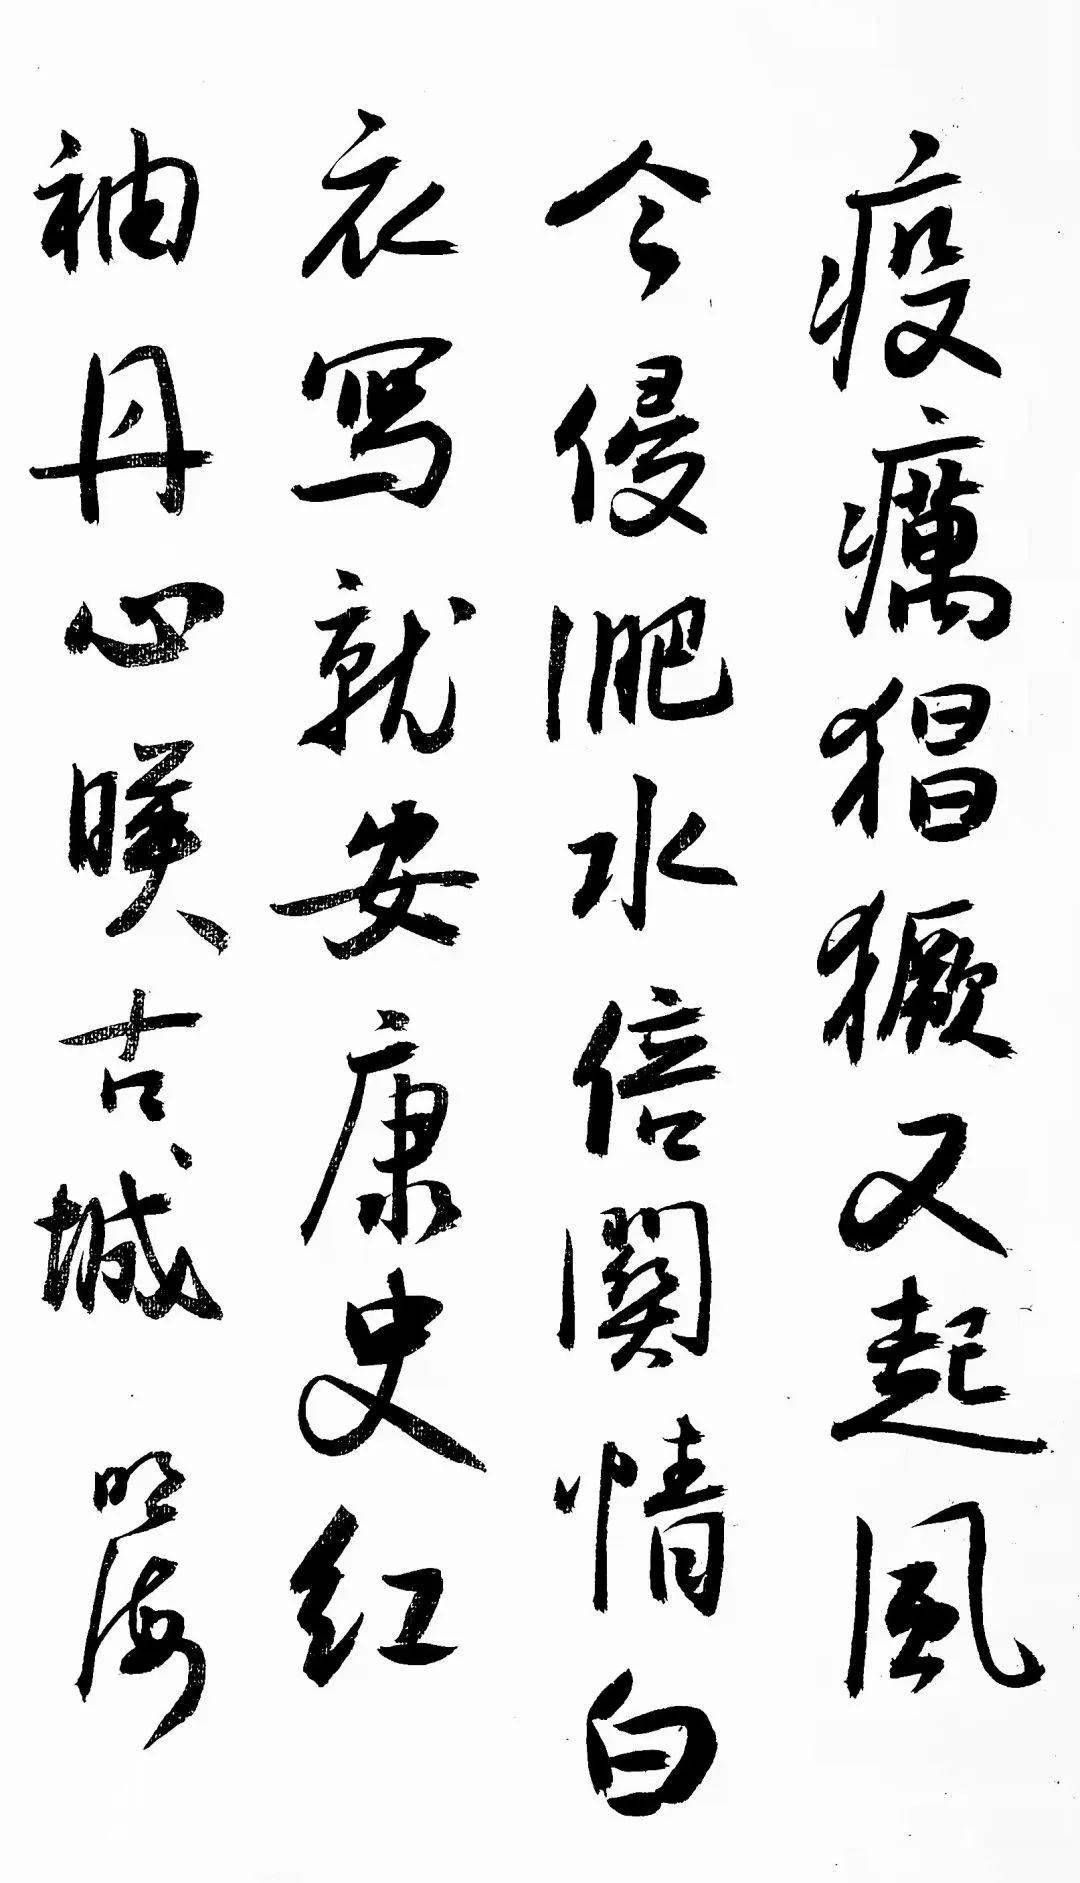 疫癘猖獗又起風
今侵淝水倍関情白
衣寫就安康史紅
袖丹心暎古城 明海